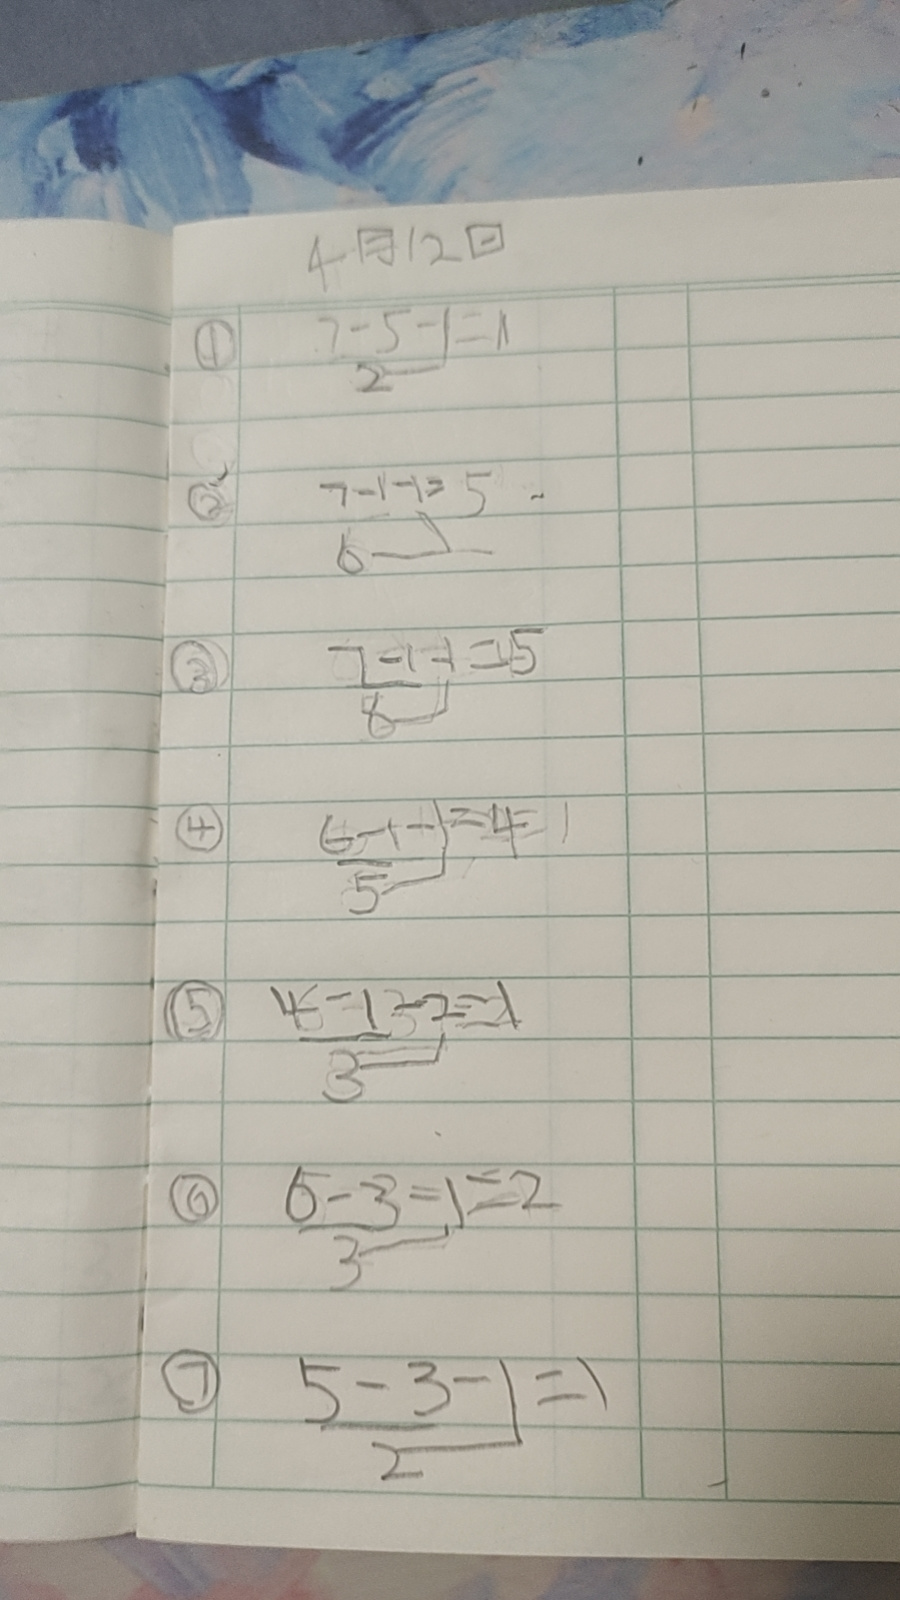 4月12日
① 7-5-1=1
2
② 7-1-1=5
6
③ 7-1-1=5
6
④ 6-1-1=4
5
⑤ 4-1-2=1
3
⑥ 6-3-1=2
3
⑦ 5-3-1=1
2